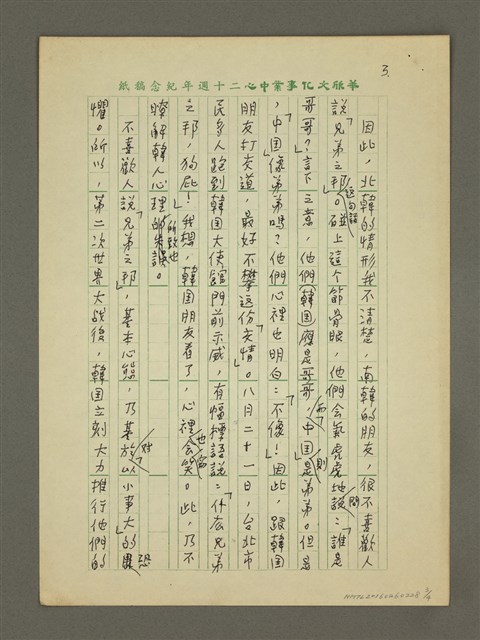 3.
華欣文化事業中心二十週年紀念稿紙
因此，北韓的情形我不清楚，南韓的朋友，很不喜歡人
說「兄弟之邦」這句話。碰上這个節骨眼，他們会氣虎虎地問：「誰是
哥哥？」言下之意，他們韓国應是哥哥，而中国則是弟弟。但是
，中国像弟弟嗎？他們心裡也明白：「不像！」因此，跟韓国
朋友打交道，最好不攀這份「交情」。八月二十一日，台北市
民多人跑到韓国大使舘門前示威，有幅標語說：「什么兄弟
之邦，狗屁！」我想，韓国朋友看了，心裡也許会笑。此，乃不
瞭解韓人心理所致也。
不喜歡人說「兄弟之邦」，基本心態，乃基於對「以小事大」的恐
懼。所以，第二次世界大战後，韓国立刻大力推行他們的
NMTL20160260208 3/4